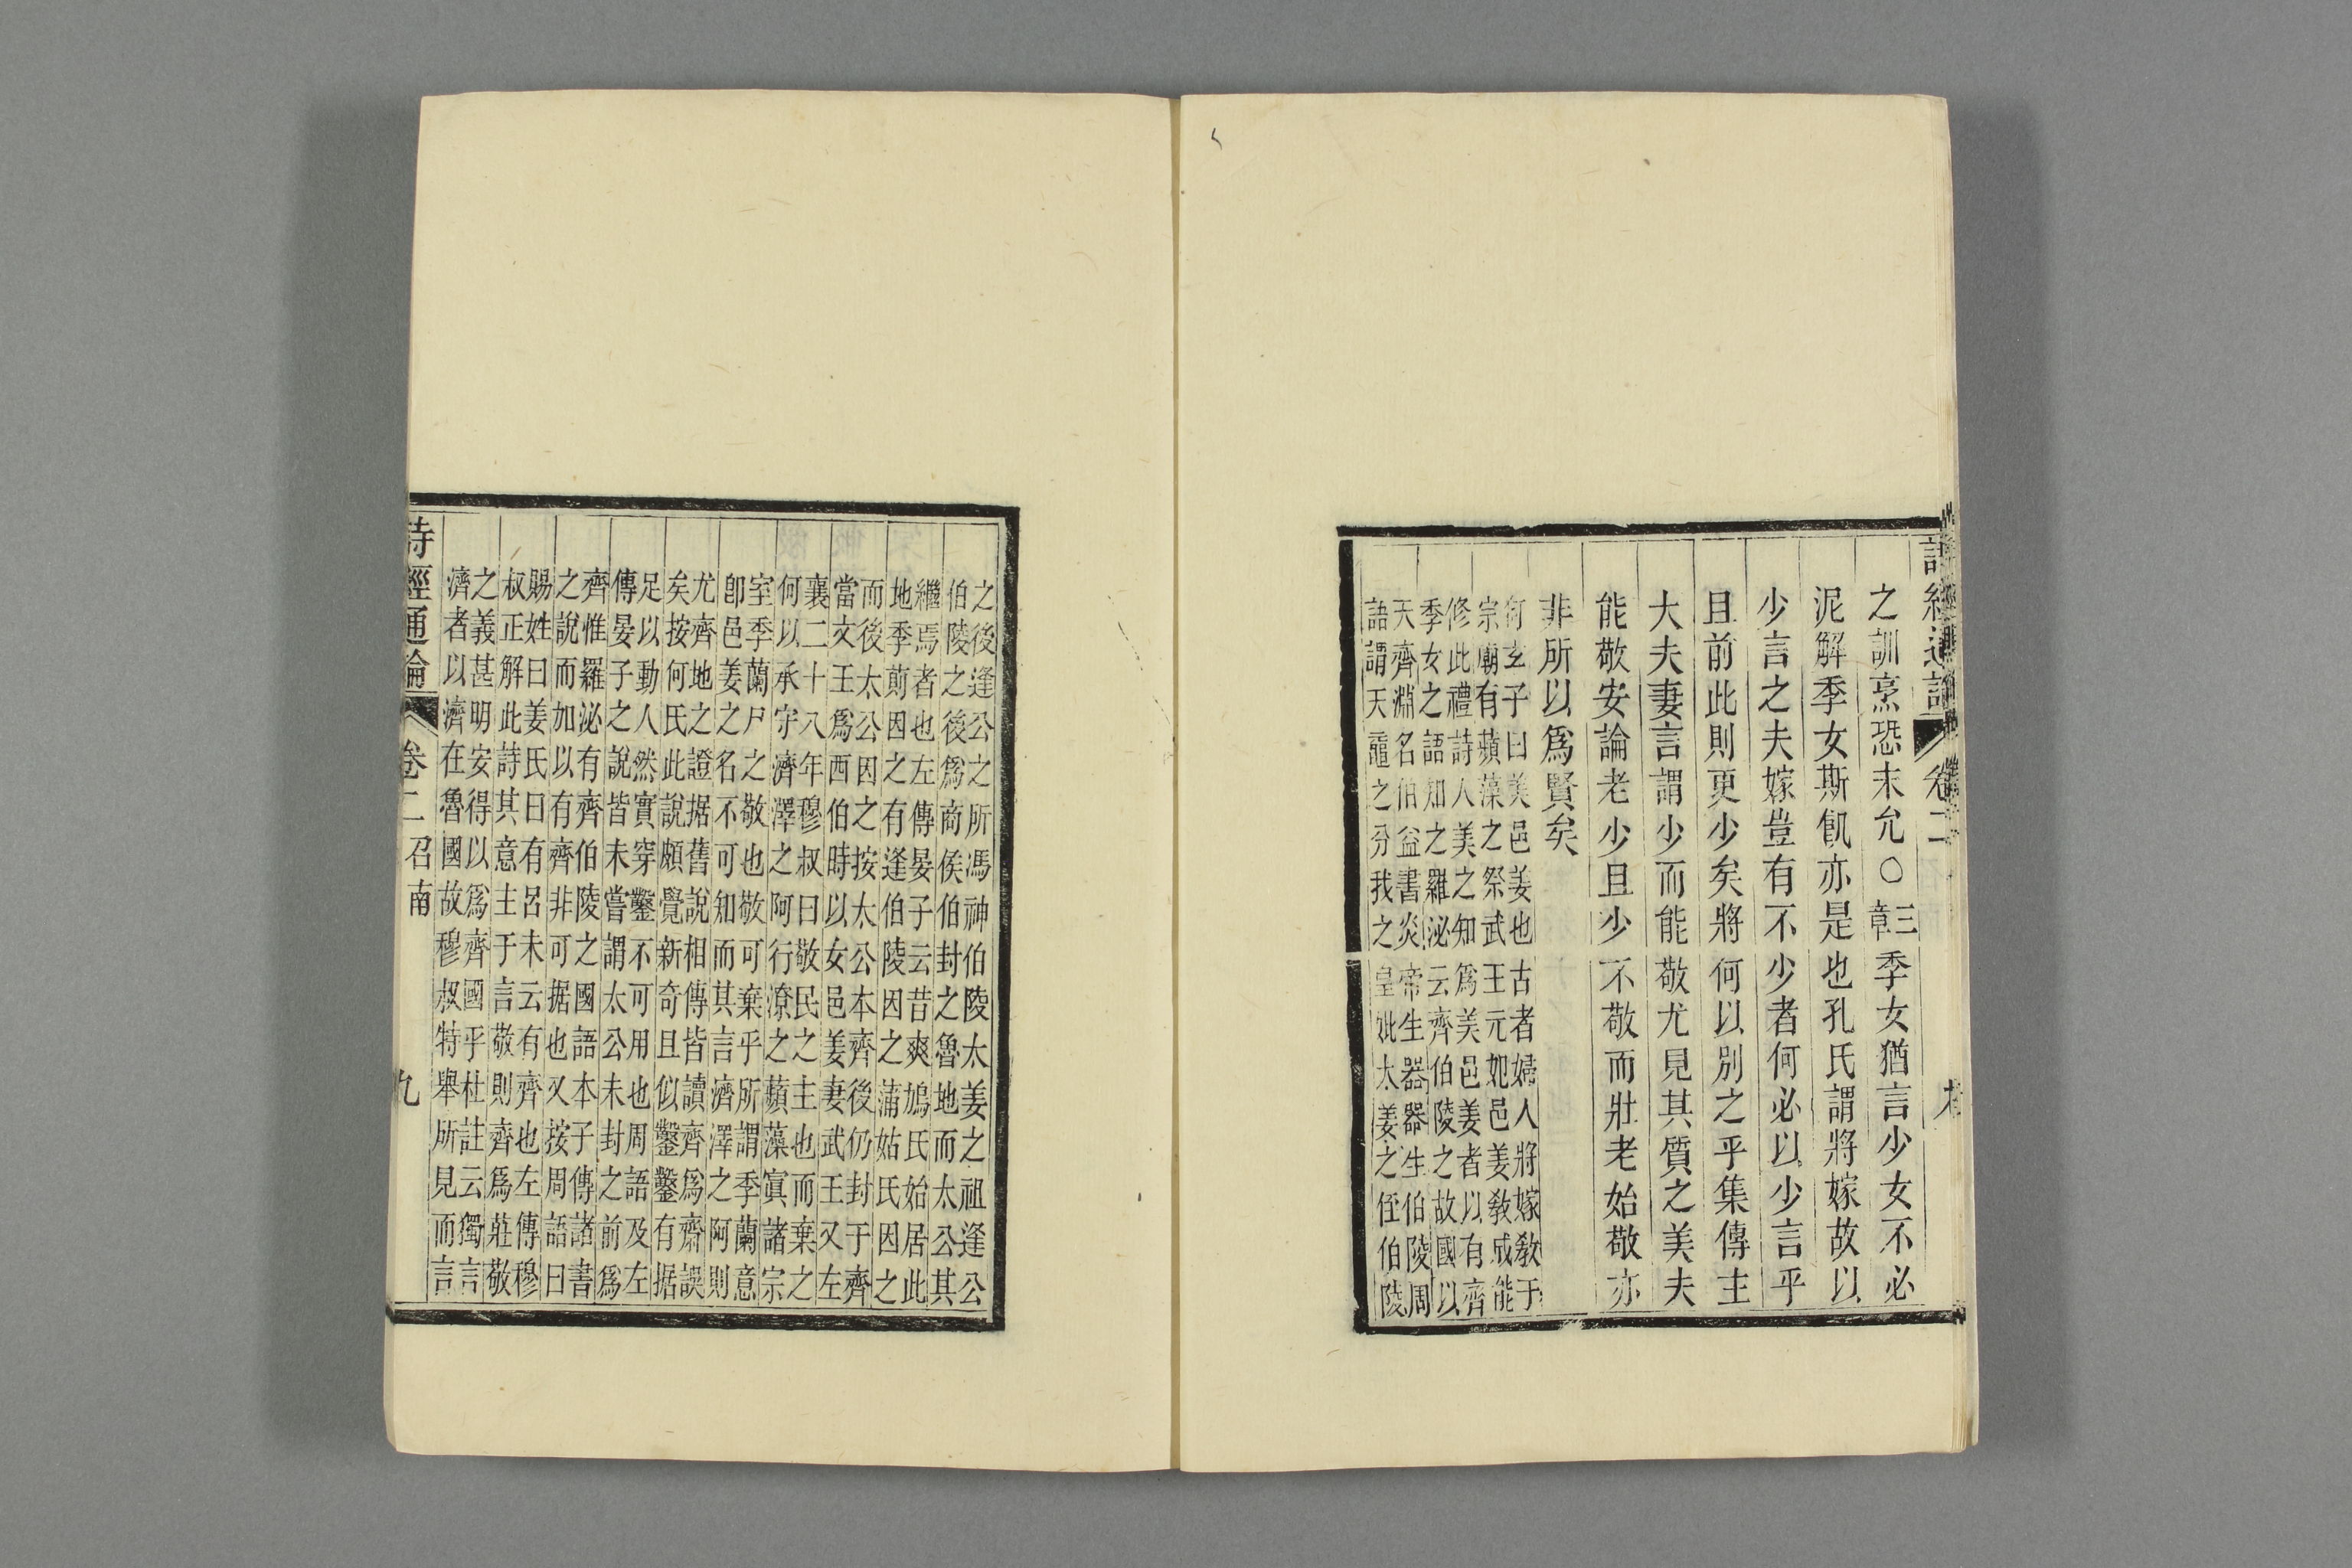 詩經通論 卷二
之訓烹恐未允○三章季女猶言少女不必
泥解季女斯飢亦是也孔氏謂將嫁故以
少言之夫嫁豈有不少者何必以少言乎
且前此則更少矣將何以別之乎集傳主
大夫妻言謂少而能敬尤見其質之美夫
能敬安論老少且少不敬而壯老始敬亦
非所以爲賢矣
何玄子曰美邑姜也古者婦人將嫁敎于
宗廟有蘋藻之祭武王元妃邑姜敎成能
修此禮詩人美之知爲美邑姜者以有齊
季女之語知之羅泌云齊伯陵之故國以
天齊淵名伯益書炎帝生器器生伯陵周
語謂天黿之分我之皇妣太姜之侄伯陵
之後逢公之所馮神伯陵太姜之祖逢公
伯陵之後爲商侯伯封之魯地而太公其
繼焉者也左傳晏子云昔爽鳩氏始居此
地季萴因之有逢伯陵因之蒲姑氏因之
而後太公因之按太公本齊後仍封于齊
當文王爲西伯時以女邑姜妻武王又左
襄二十八年穆叔曰敬民之主也而棄之
何以承守濟澤之阿行潦之蘋藻寘諸宗
室季蘭尸之敬也敬可棄乎所謂季蘭意
卽邑姜之名不可知而其言濟澤之阿則
尤齊地之證据舊說相傳皆讀齊爲齋誤
矣按何氏此說頗覺新奇且似鑿鑿有据
足以動人然實穿鑿不可用也周語及左
傳晏子之說皆未嘗謂太公未封之前爲
齊惟羅泌有齊伯陵之國語本子傳諸書
之說而加以有齊非可据也又按周語曰
賜姓曰姜氏曰有呂未云有齊也左傳穆
叔正解此詩其意主于言敬則齊爲莊敬
之義甚明安得以爲齊國乎杜註云獨言
濟者以濟在魯國故穆叔特舉所見而言
詩經通論 卷二 召南 九